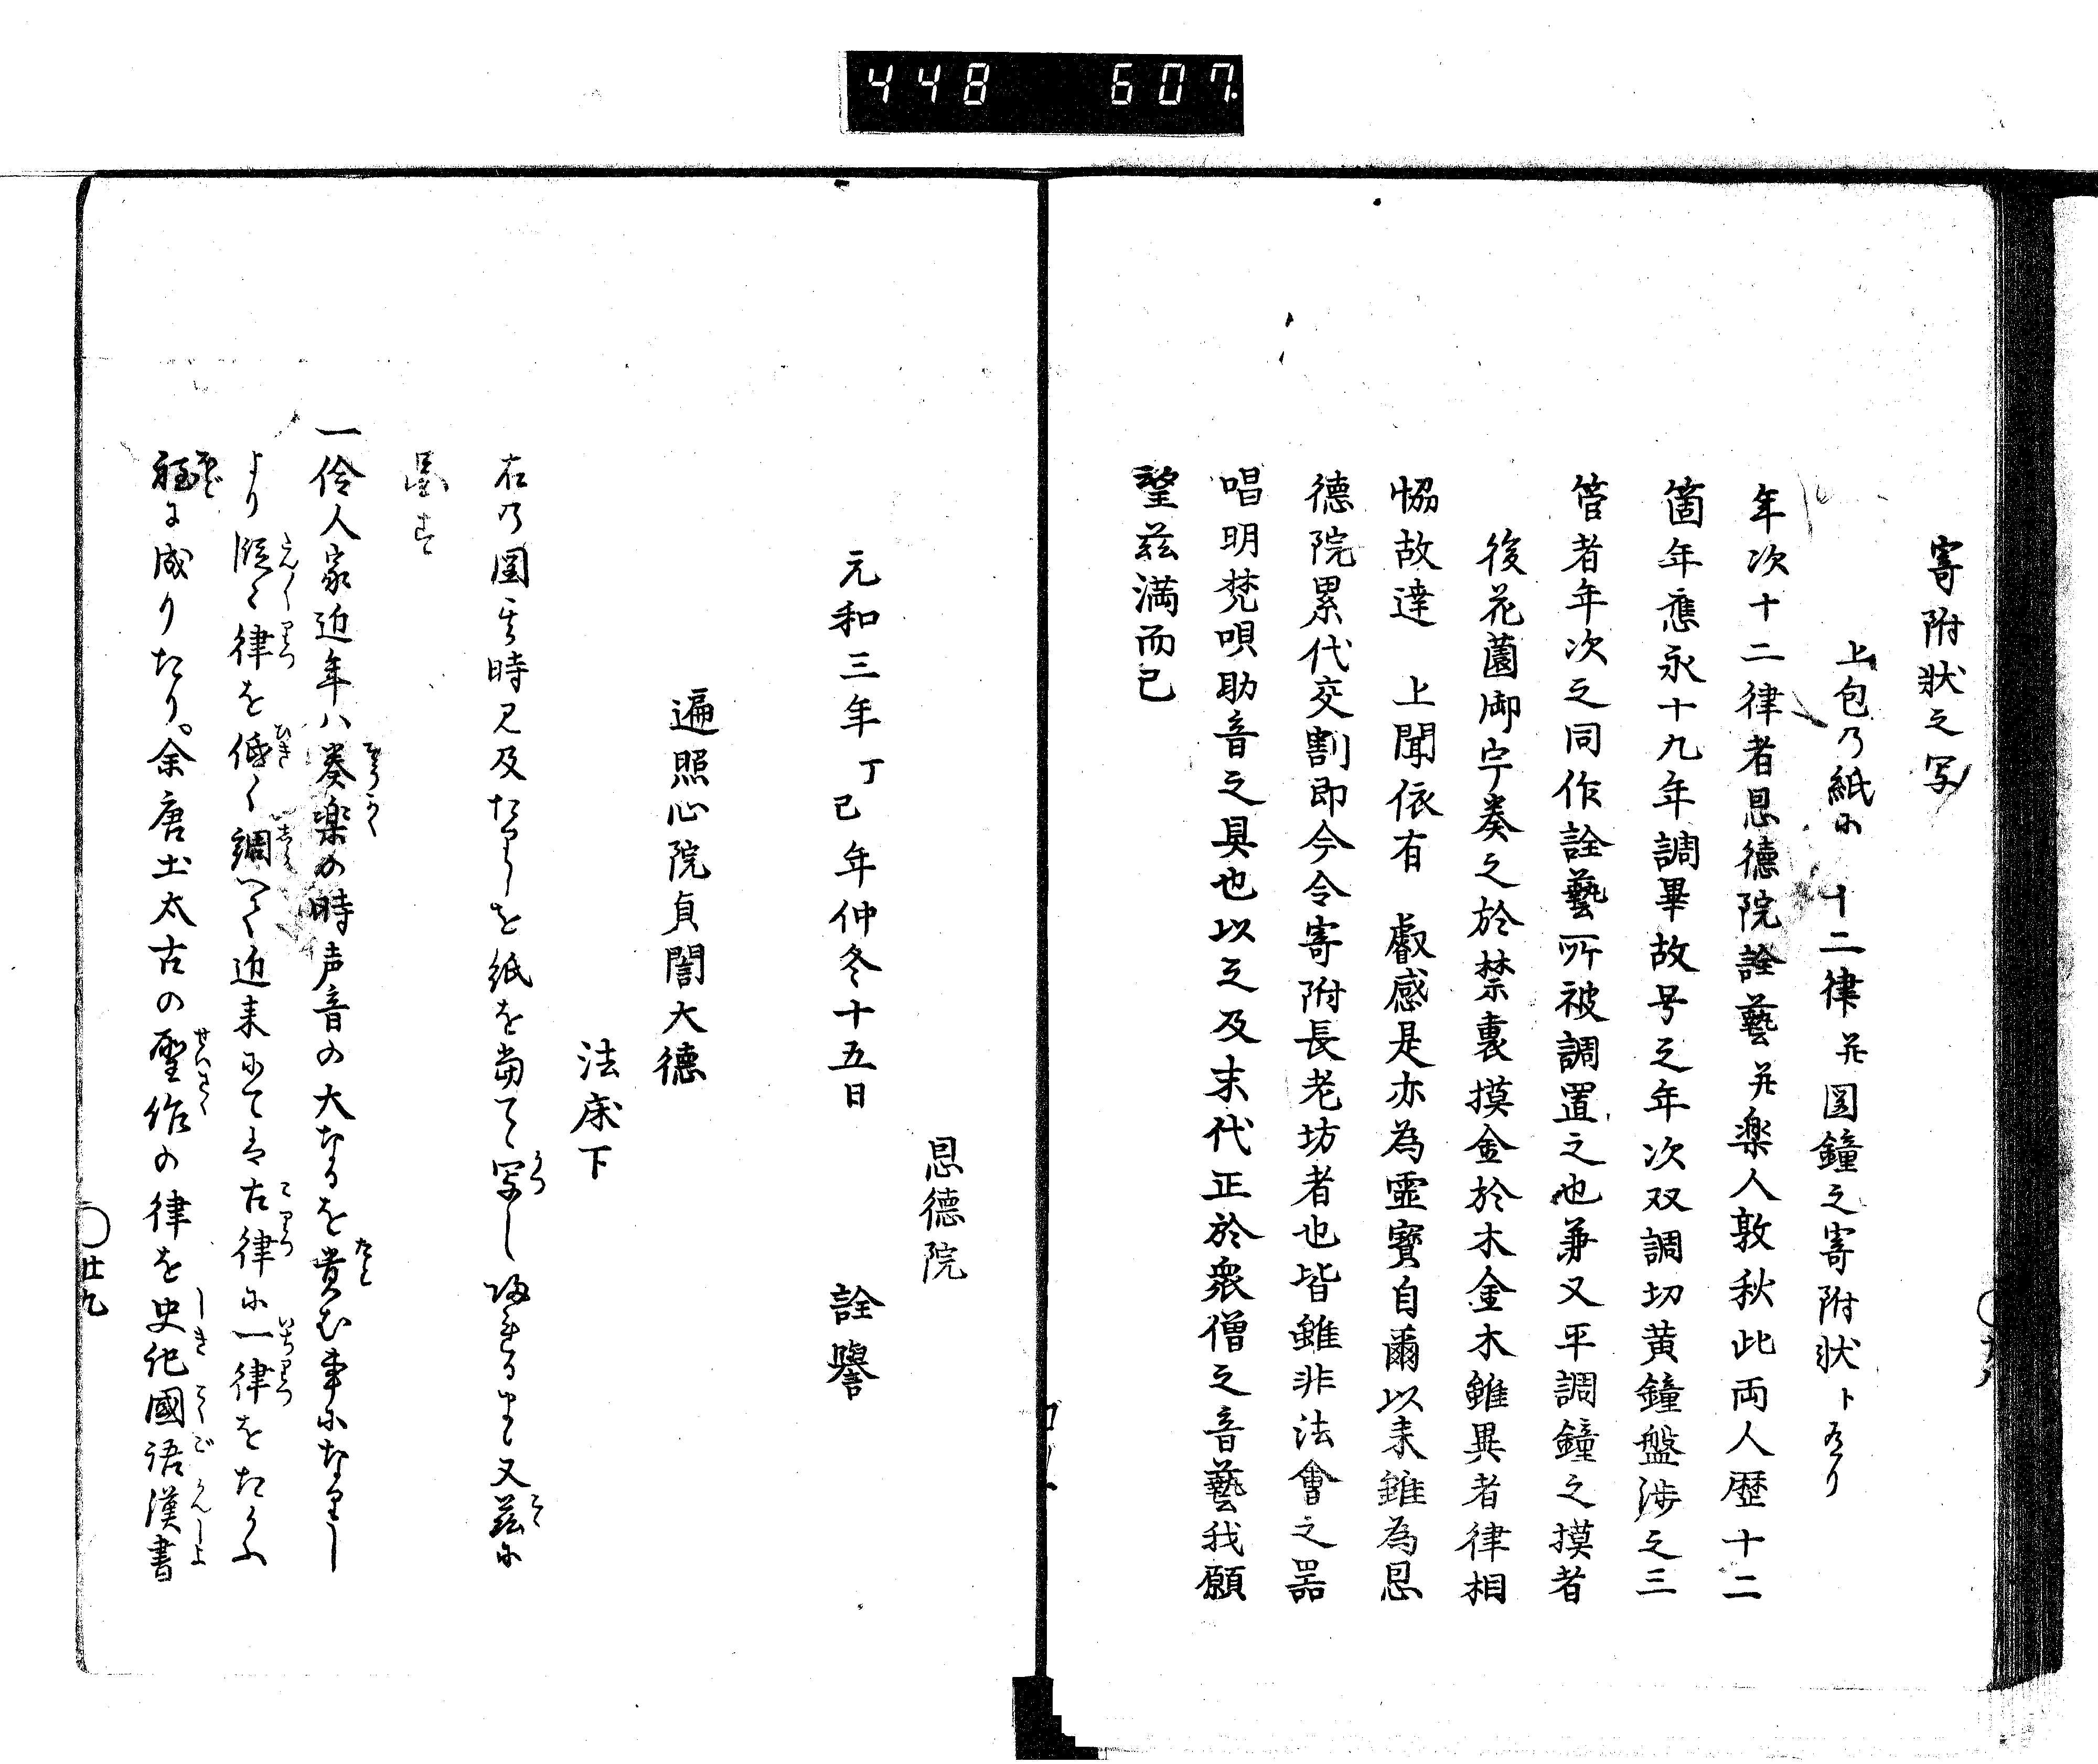 448 607
寄附状之写
上包乃紙に 十二律并図鐘之寄附状ト有り
年次十二律者恩徳院詮藝并楽人敦秋此両人歴十二
箇年應永十九年調畢故号之年次双調切黄鐘盤渉之三
管者年次之同作詮藝所被調置之也兼又平調鐘之摸者
後花薗御宇奏之於禁裏摸金於木金木雖異者律相
恊故達 上聞依有 叡感是亦為霊寶自爾以来雖為恩
徳院累代交割即今令寄附長老坊者也皆雖非法會之器
唱明梵唄助音之具也以之及末代正於衆僧之音藝我願
望茲満而已
恩徳院
元和三年丁巳年仲冬十五日 詮譽
遍照心院貞誾大徳
法床下
右乃図其時見及たりしを紙を当て写し帰りける
又茲に
図す
一伶人家近年ハ奏楽の時声音の大なるを貴む事になりし
より漸々律を低く調へて近来にては古律に一律をたがふ
程に成りたり。余唐土太古の聖作の律を史記國語漢書
廿九